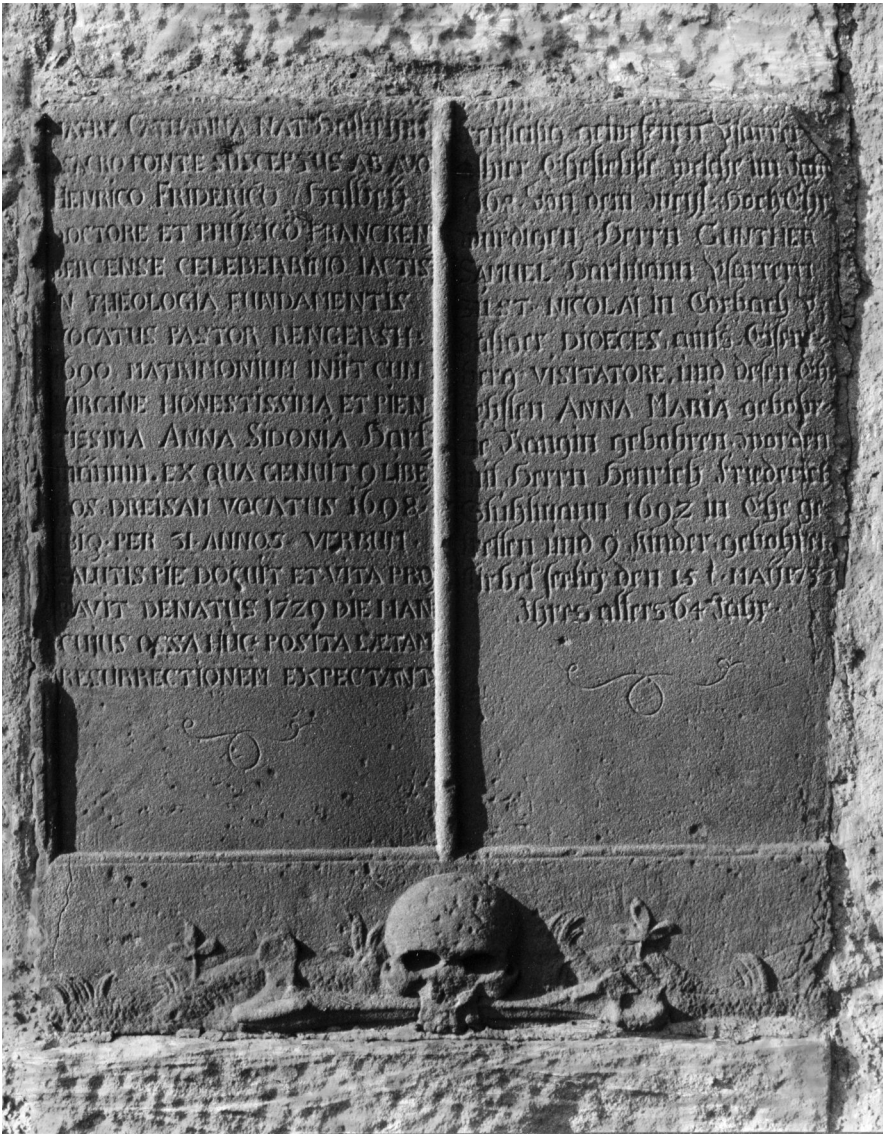 MATRE CATHARINA NAT.
SACRO FONTE SUSCEPTUS AB AVO
HENRICO FRIDERICO
DOCTORE ET PHÿSICO FRANCKEN
BERGENSE CELEBERRIMO IACTIS
IN THEOLOGIA FUNDAMENTIS
VOCATUS PASTOR RENGERSH:
1690 MATRIMONIUM INIIT CUM
VIRGINE HONESTISSIMA ET PIEN
TISSIMA ANNA SIDONIA Hart
männin. EX QUA GENUIT 9 LIBE
ROS. DREISAM VOCATUS 1698.
IBIQ. PER 31 ANNOS VERBUM
SALUTIS PIE DOCUIT ET VITA PRO
BAVIT DENATUS 1729 DIE
CUJUS OSSA HUC POSITA LÆTAM
RESURRECTIONEM EXPECTANT
gewesenen Pfarrer
alhier Eheliebste, welche im Jahr
von dem Hoch Ehr
würdigen Herrn GUNTHER
SAMUEL Hartmann Pfarrern
ST. NICOLAI in Corbach
DIOECES, amts Eisen
berg VISITATORE, und desen Ehe
liebsten ANNA MARIA gebohr
ne Rangin gebohren worden
mit Herrn Henrich Friederich
1692 in Ehe ge
sessen und 9 Kinder gebohren
seelig den 15 t. MAJI
Ihres alters 64 Jahr.